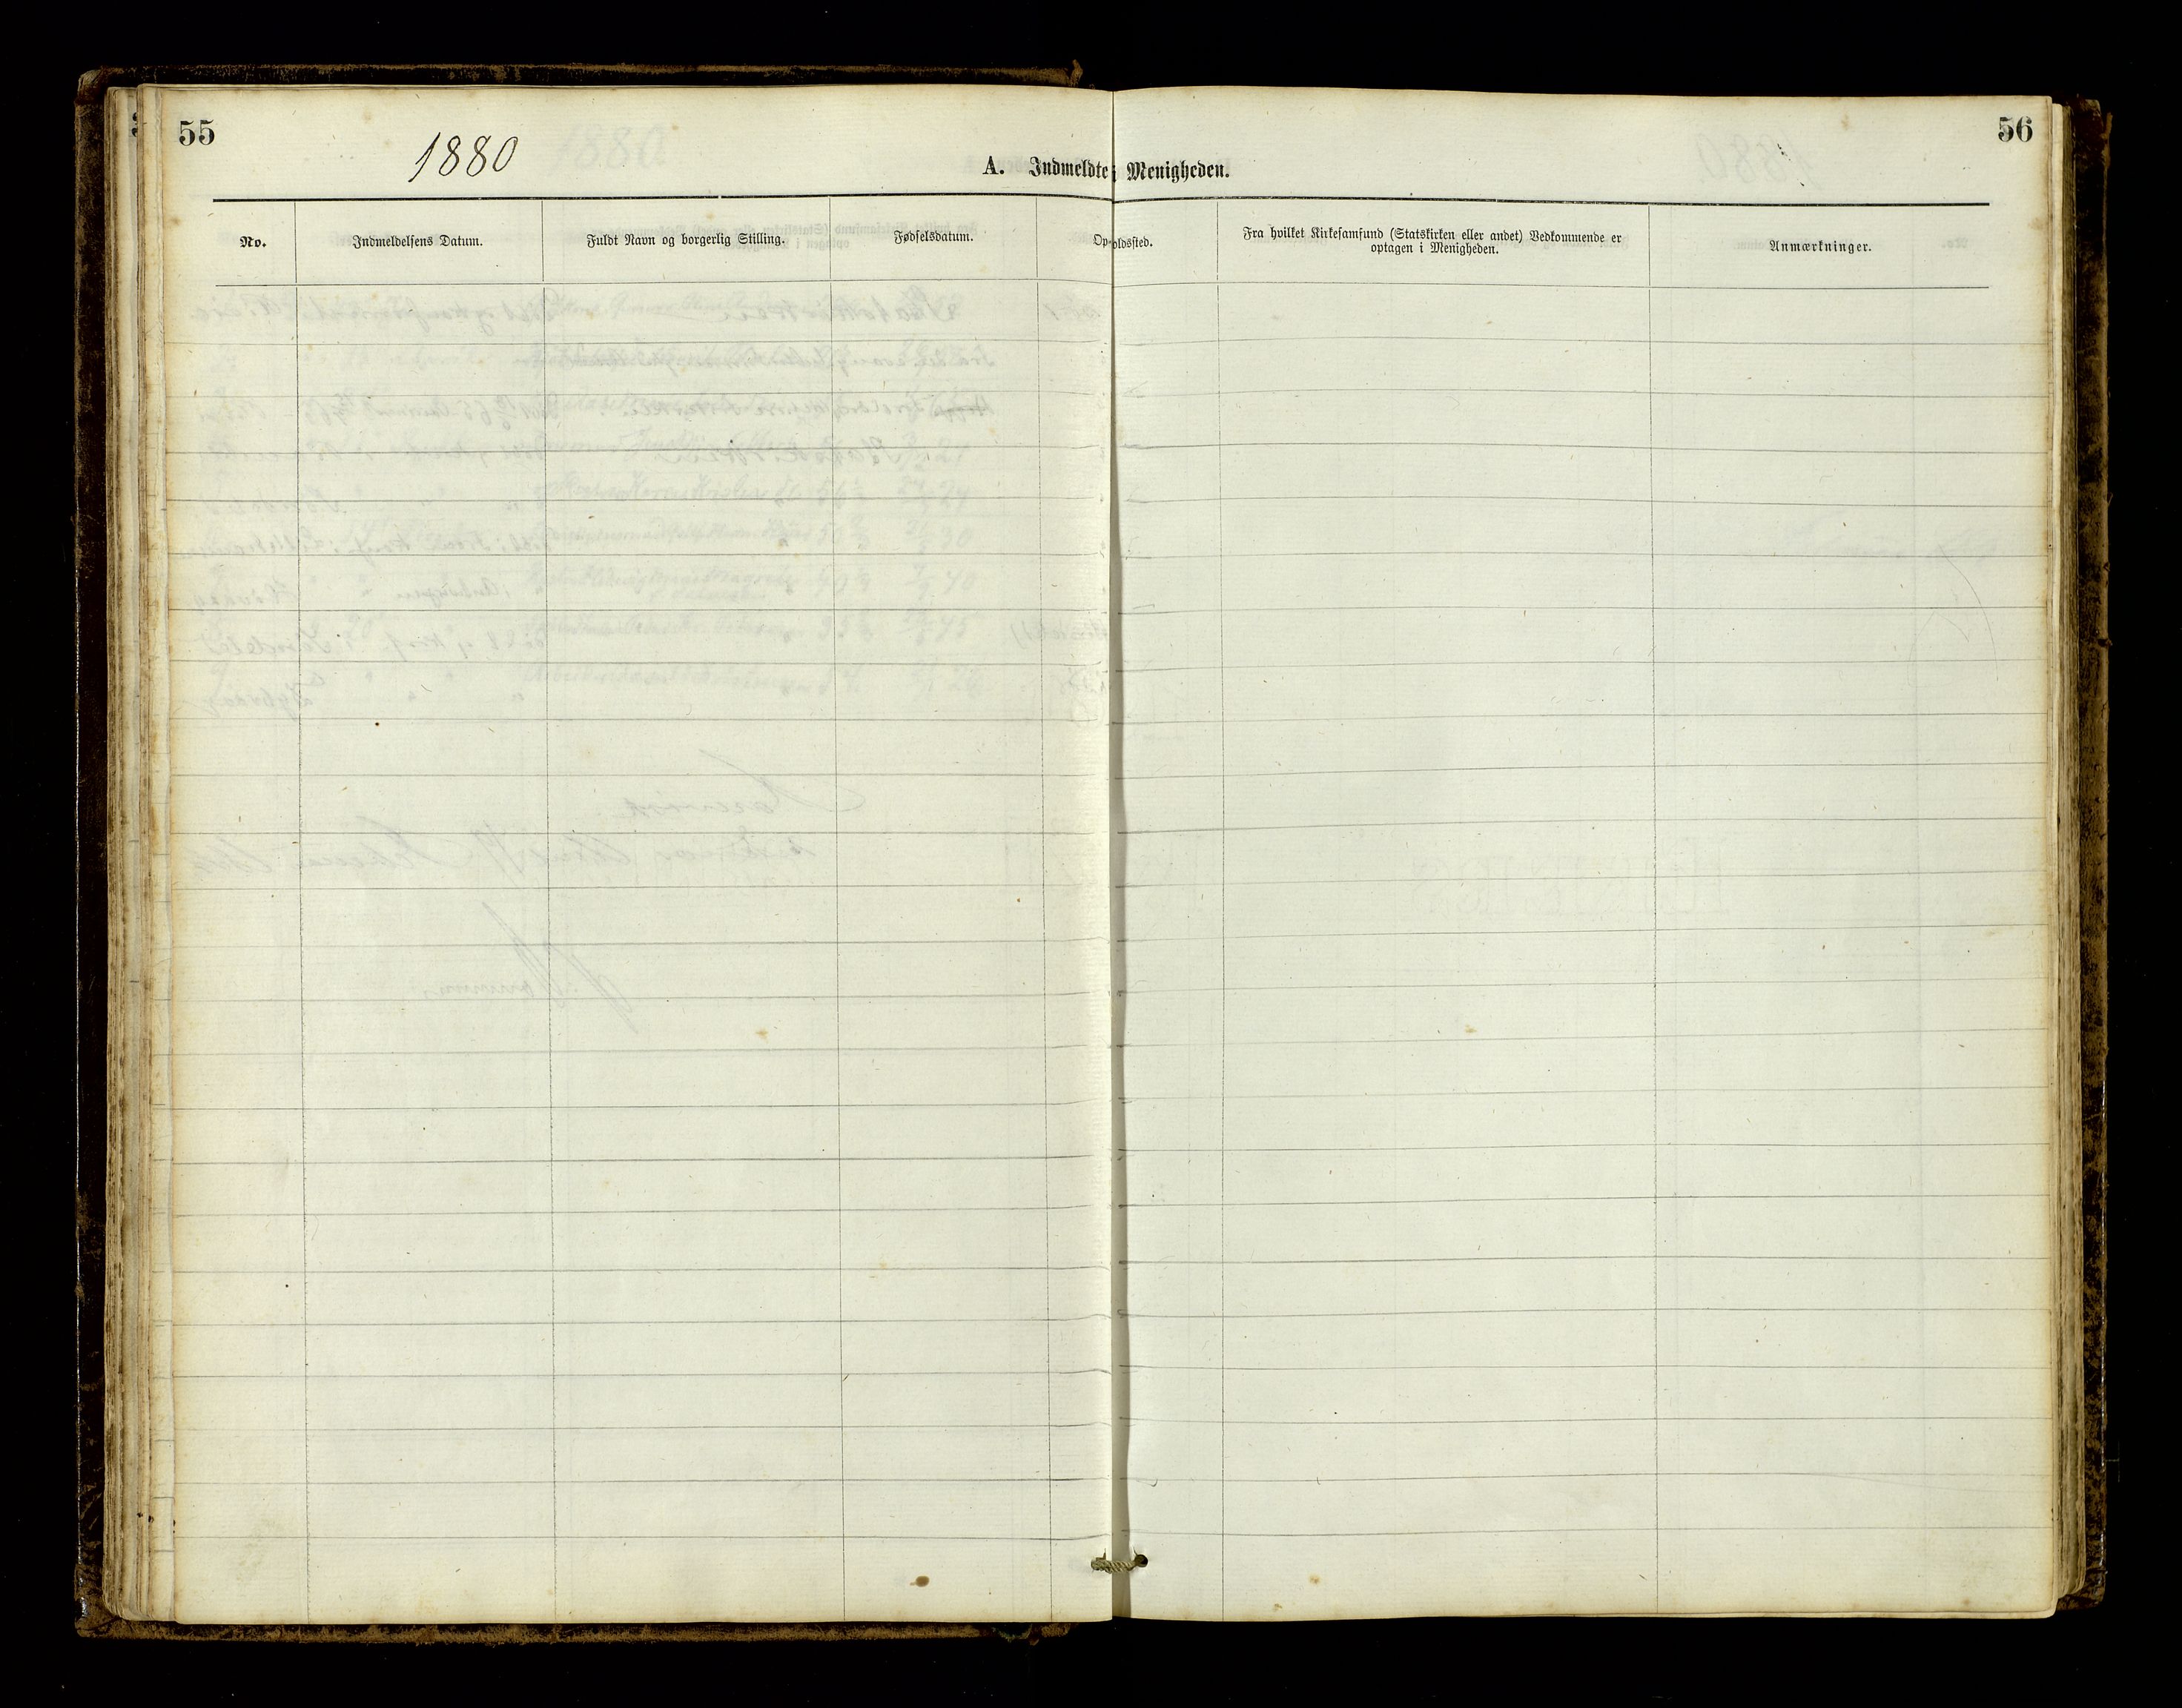 55
56
1880
A. Indmeldte i Menigheden.
No.
Indmeldelsens Datum.
Fuldt Navn og borgerlig Stilling.
Fødselsdatum.
Op-oldssted.
Fra hvilket Kirkesamfund (Statskirken eller andet) Vedkommende er
optagen i Menigheden.
Anmærkninger.